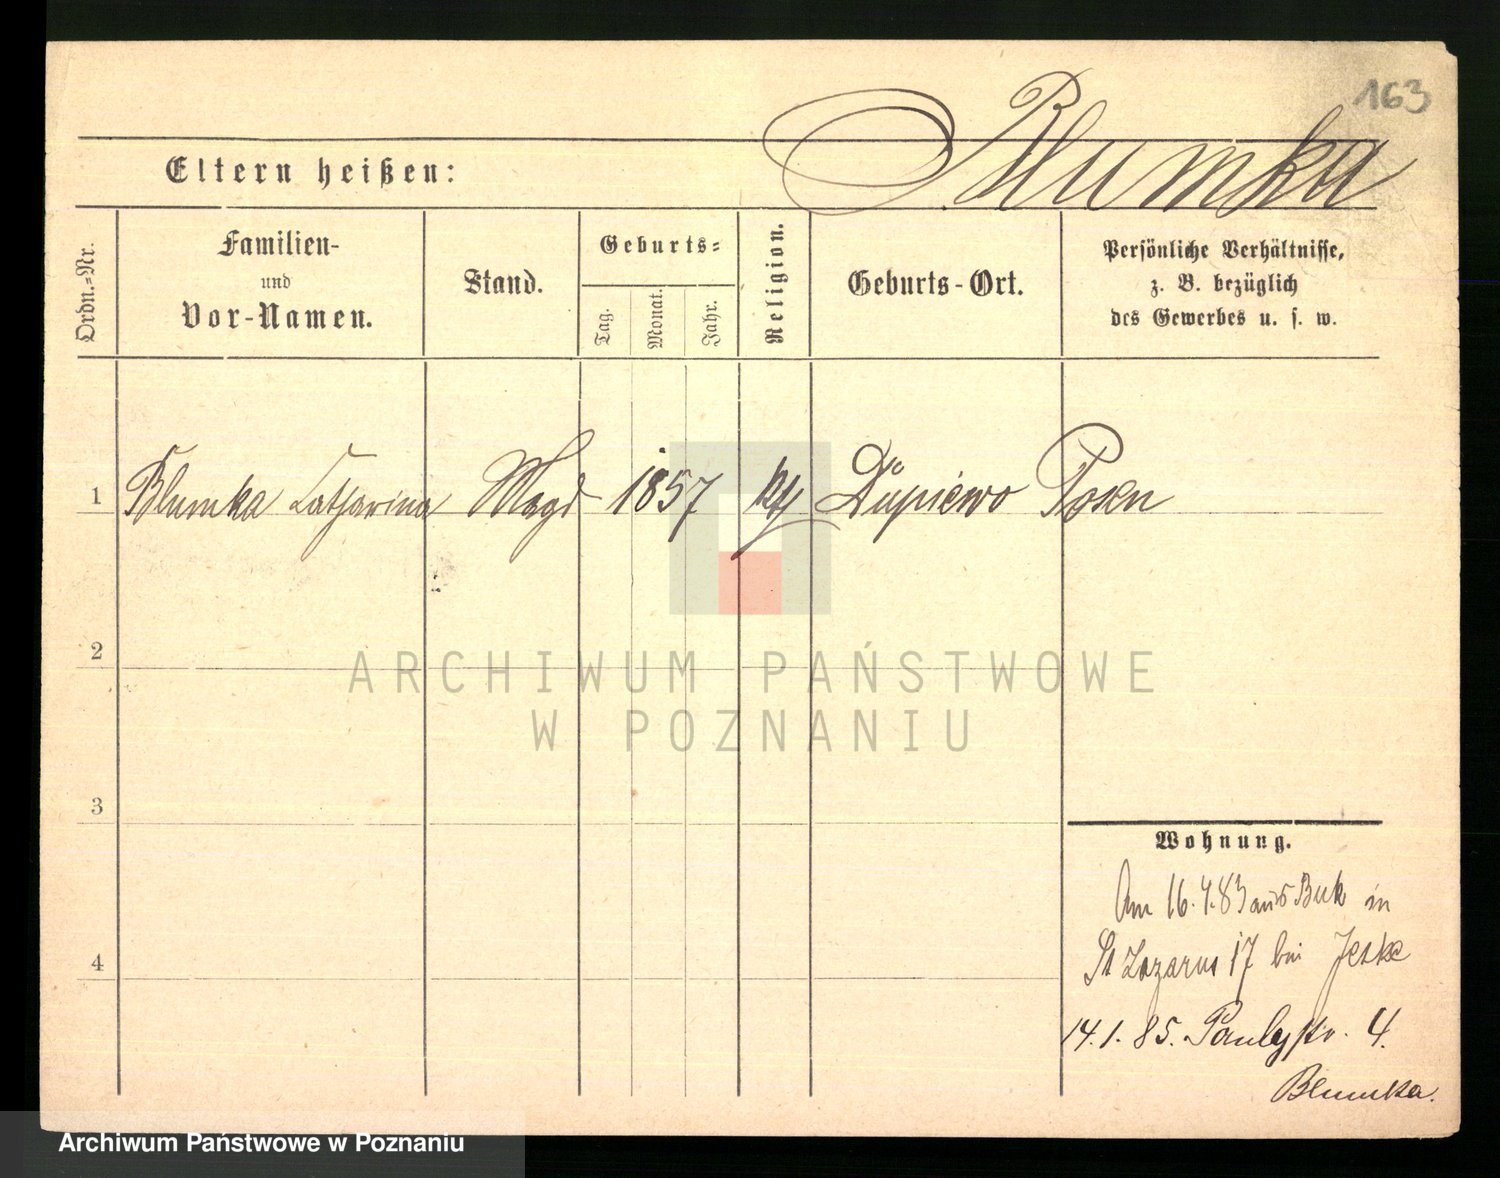 163
Blumka
Eltern heißen:
Ordn.-Nr.
Familien-
und
Vor-Namen.
Stand.
Geburts-
Tag.
Monat.
Jahr.
Religion.
Geburts-Ort.
Persönliche Verhältnisse,
z. B. bezüglich
des Gewerbes u. s. w.
1 Blumka Catharina Magd 1857 kth Dupiewo Posen
2
ARCHIWUM PAŃSTWOWE
W POZNANIU
3
4
Wohnung.
Am 16.4.83 aus Buk in
St Lazarus 17 bei Jeske
14.1.85. Paulystr. 4.
Blumka.
Archiwum Państwowe w Poznaniu